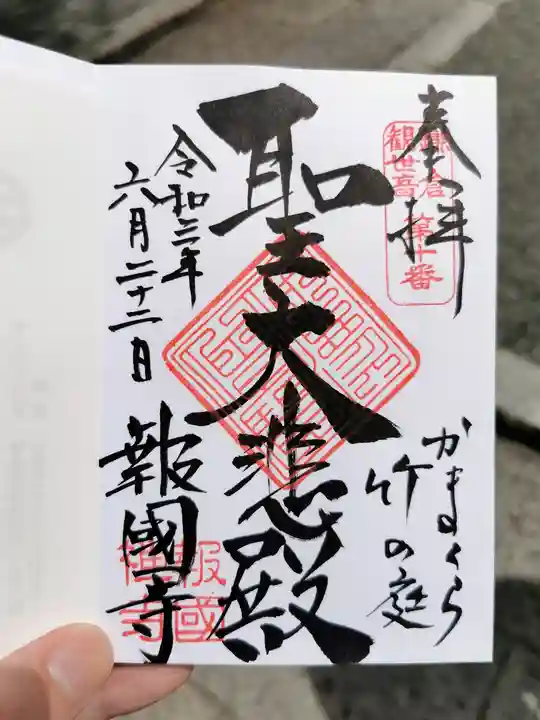 奉拝
鎌倉
観世音
第十番
かまくら
竹の庭
聖大悲殿
令和三年
六月二十二日
報國寺
報國
禅寺